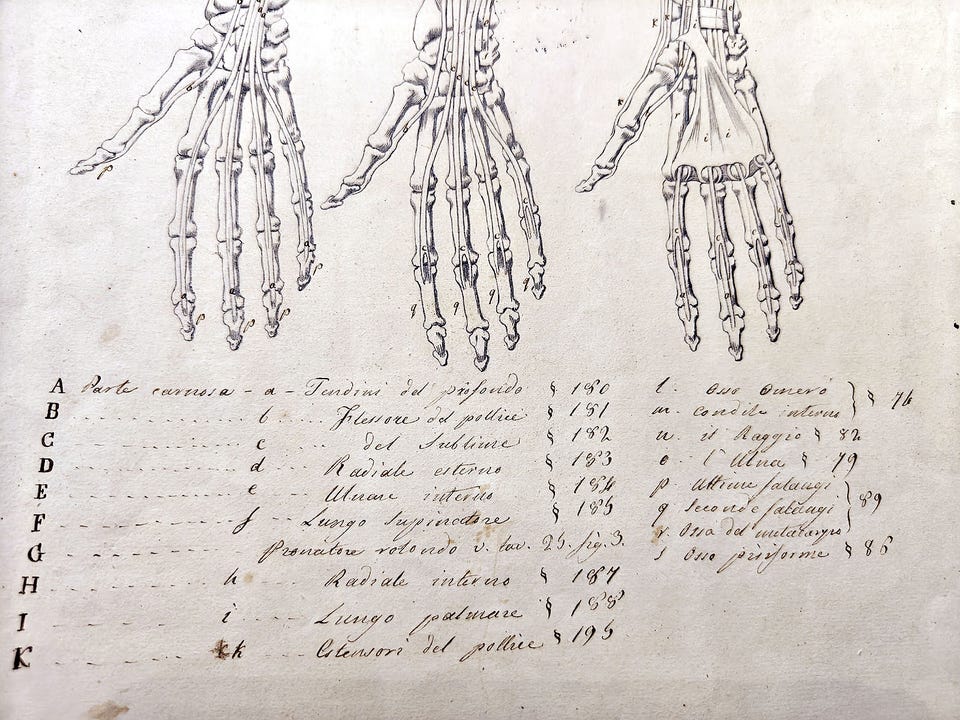 A Parte carnosa - a - Tendini del profondo § 180
B b Flessore del pollice § 181
C c del Sublime § 182
D d Radiale esterno § 183
E e Ulnare interno § 184
F f Lungo Supinatore § 185
G Pronatore rotondo v. tav. 25. fig. 3.
H h Radiale interno § 187
I i Lungo palmare § 188
K kk Estensori del pollice § 195
l. osso omero
m. condilo interno § 76
n. il Raggio § 82
o l'Ulna § 79
p. ultime falangi
q Seconde falangi § 89
r. Ossa del metacarpo
s Osso pisiforme § 86